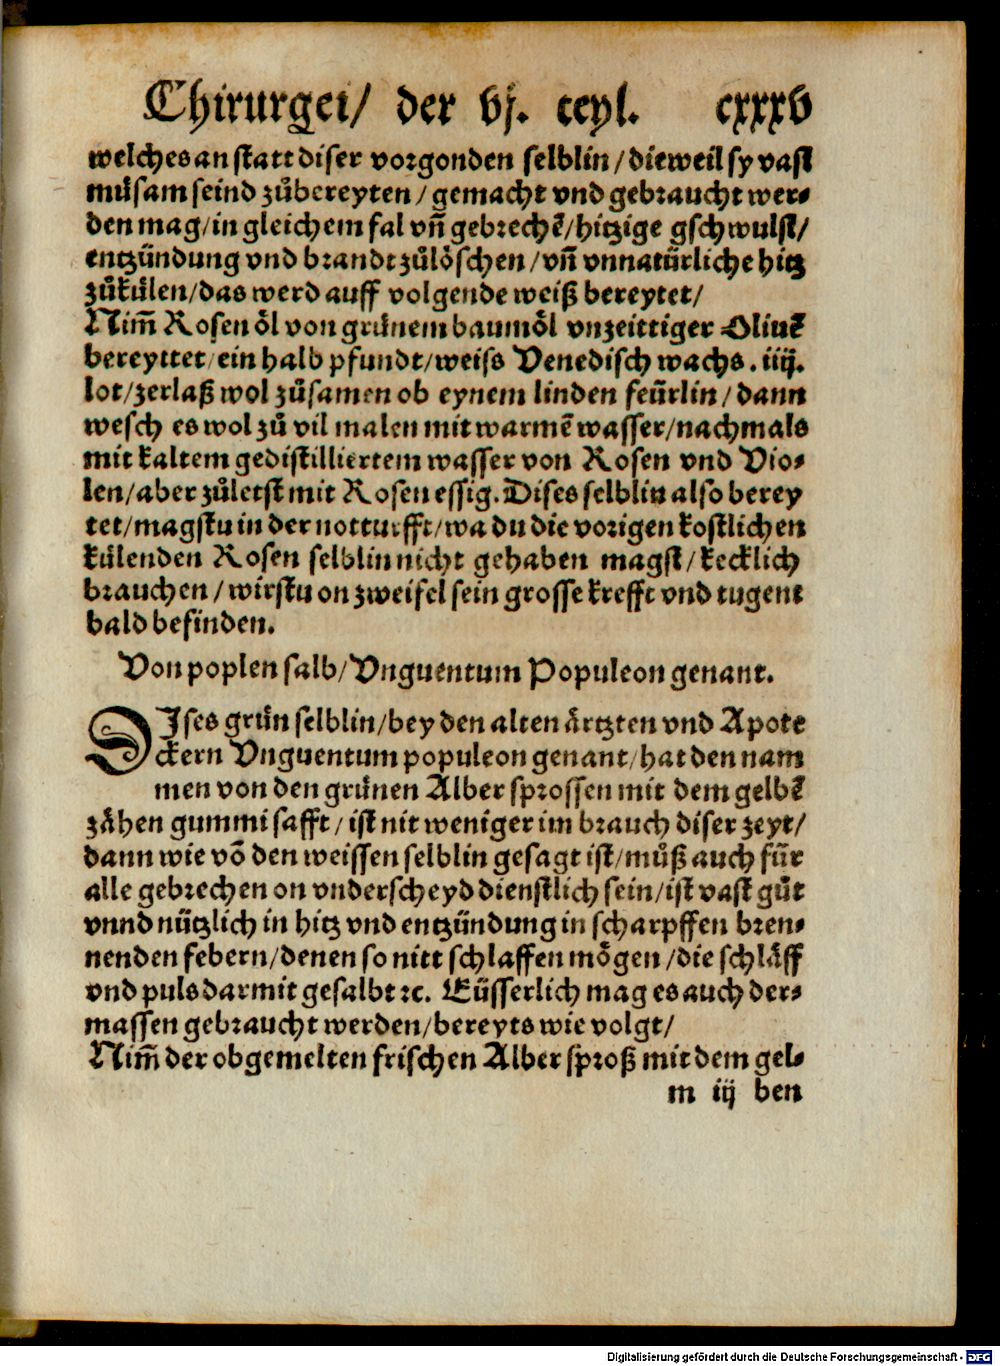 Chirurgei/ der vj. teyl. cxxxv
welches an statt diser vorgonden selblin/dieweil sy vast
muͤsam seind zůbereyten/gemacht vnd gebraucht wer⸗
den mag/in gleichem fal vñ gebrechẽ/hitzige gschwulst/
entzündung vnd brandt zůlöschen/vñ vnnatürliche hitz
zůkuͤlen/das werd auff volgende weiß bereytet/
Nim̃ Rosen öl von gruͤnem baumöl vnzeittiger Oliuẽ
bereyttet/ein halb pfundt/weiss Venedisch wachs.iiij.
lot/zerlaß wol zůsamen ob eynem linden feürlin/dann
wesch es wol zů vil malen mit warmẽ wasser/nachmals
mit kaltem gedistilliertem wasser von Rosen vnd Vio⸗
len/aber zůletst mit Rosen essig.Dises selblin also berey
tet/magstu in der notturfft/wa du die vorigen kostlichen
kuͤlenden Rosen selblin nicht gehaben magst/kecklich
brauchen/wirstu on zweifel sein grosse krefft vnd tugent
bald befinden.
Von poplen salb/Vnguentum Populeon genant.
DIses gruͤn selblin/bey den alten ärtzten vnd Apote
ckern Vnguentum populeon genant/hat den nam
men von den gruͤnen Alber sprossen mit dem gelbẽ
zähen gummi safft/ist nit weniger im brauch diser zeyt/
dann wie võ den weissen selblin gesagt ist/můß auch für
alle gebrechen on vnderscheyd dienstlich sein/ist vast gůt
vnnd nützlich in hitz vnd entzündung in scharpffen bren⸗
nenden febern/denen so nitt schlaffen mögen/die schläff
vnd puls darmit gesalbt ꝛc. Eüsserlich mag es auch der⸗
massen gebraucht werden/bereyts wie volgt/
Nim̃ der obgemelten frischen Alber sproß mit dem gel⸗
m iij ben
Digitalisierung gefördert durch die Deutsche Forschungsgemeinschaft - DFG